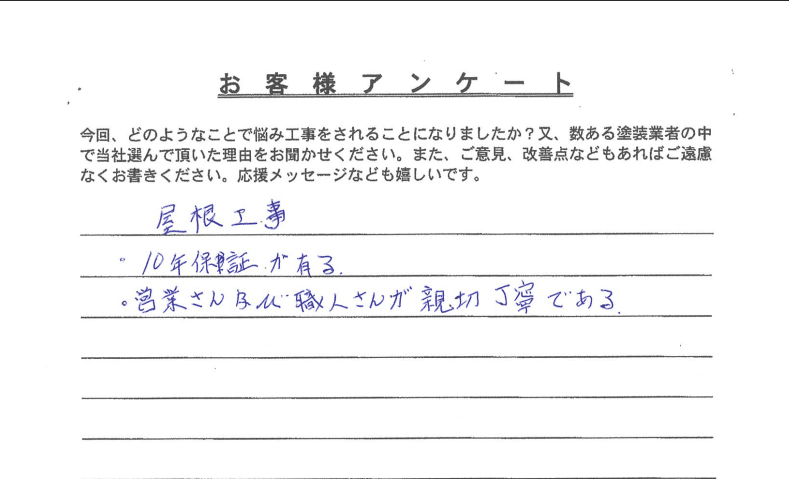 お客様アンケート
今回、どのようなことで悩み工事をされることになりましたか？又、数ある塗装業者の中
で当社選んで頂いた理由をお聞かせください。また、ご意見、改善点などもあればご遠慮
なくお書きください。応援メッセージなども嬉しいです。
屋根工事
。10年保証が有る.
。営業さん及び職人さんが親切丁寧である.